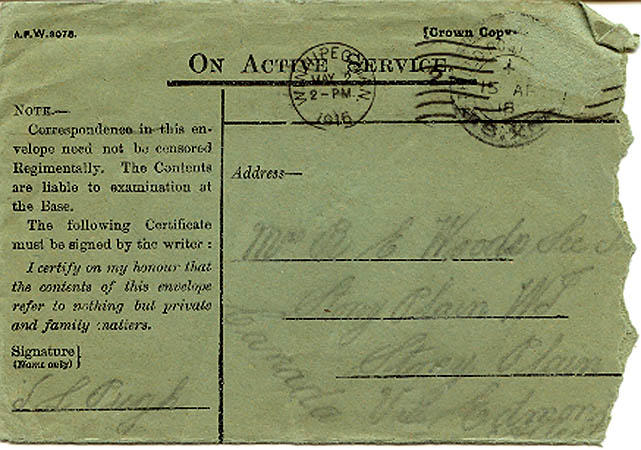 A.F.W.3078.
[Crown Copy
ON ACTIVE SERVICE.
WINNIPEG MAN.
MAY 2
2-PM
1916
15 AP
16
NOTE.—
Correspondence in this en-
velope need not be censored
Regimentally. The Contents
are liable to examination at
the Base.
The following Certificate
must be signed by the writer :
I certify on my honour that
the contents of this envelope
refer to nothing but private
and family matters.
Signature }
(Name only)
Pugh
Address—
Mrs
Woods
Plain
Plain
Canada
Via Edmon